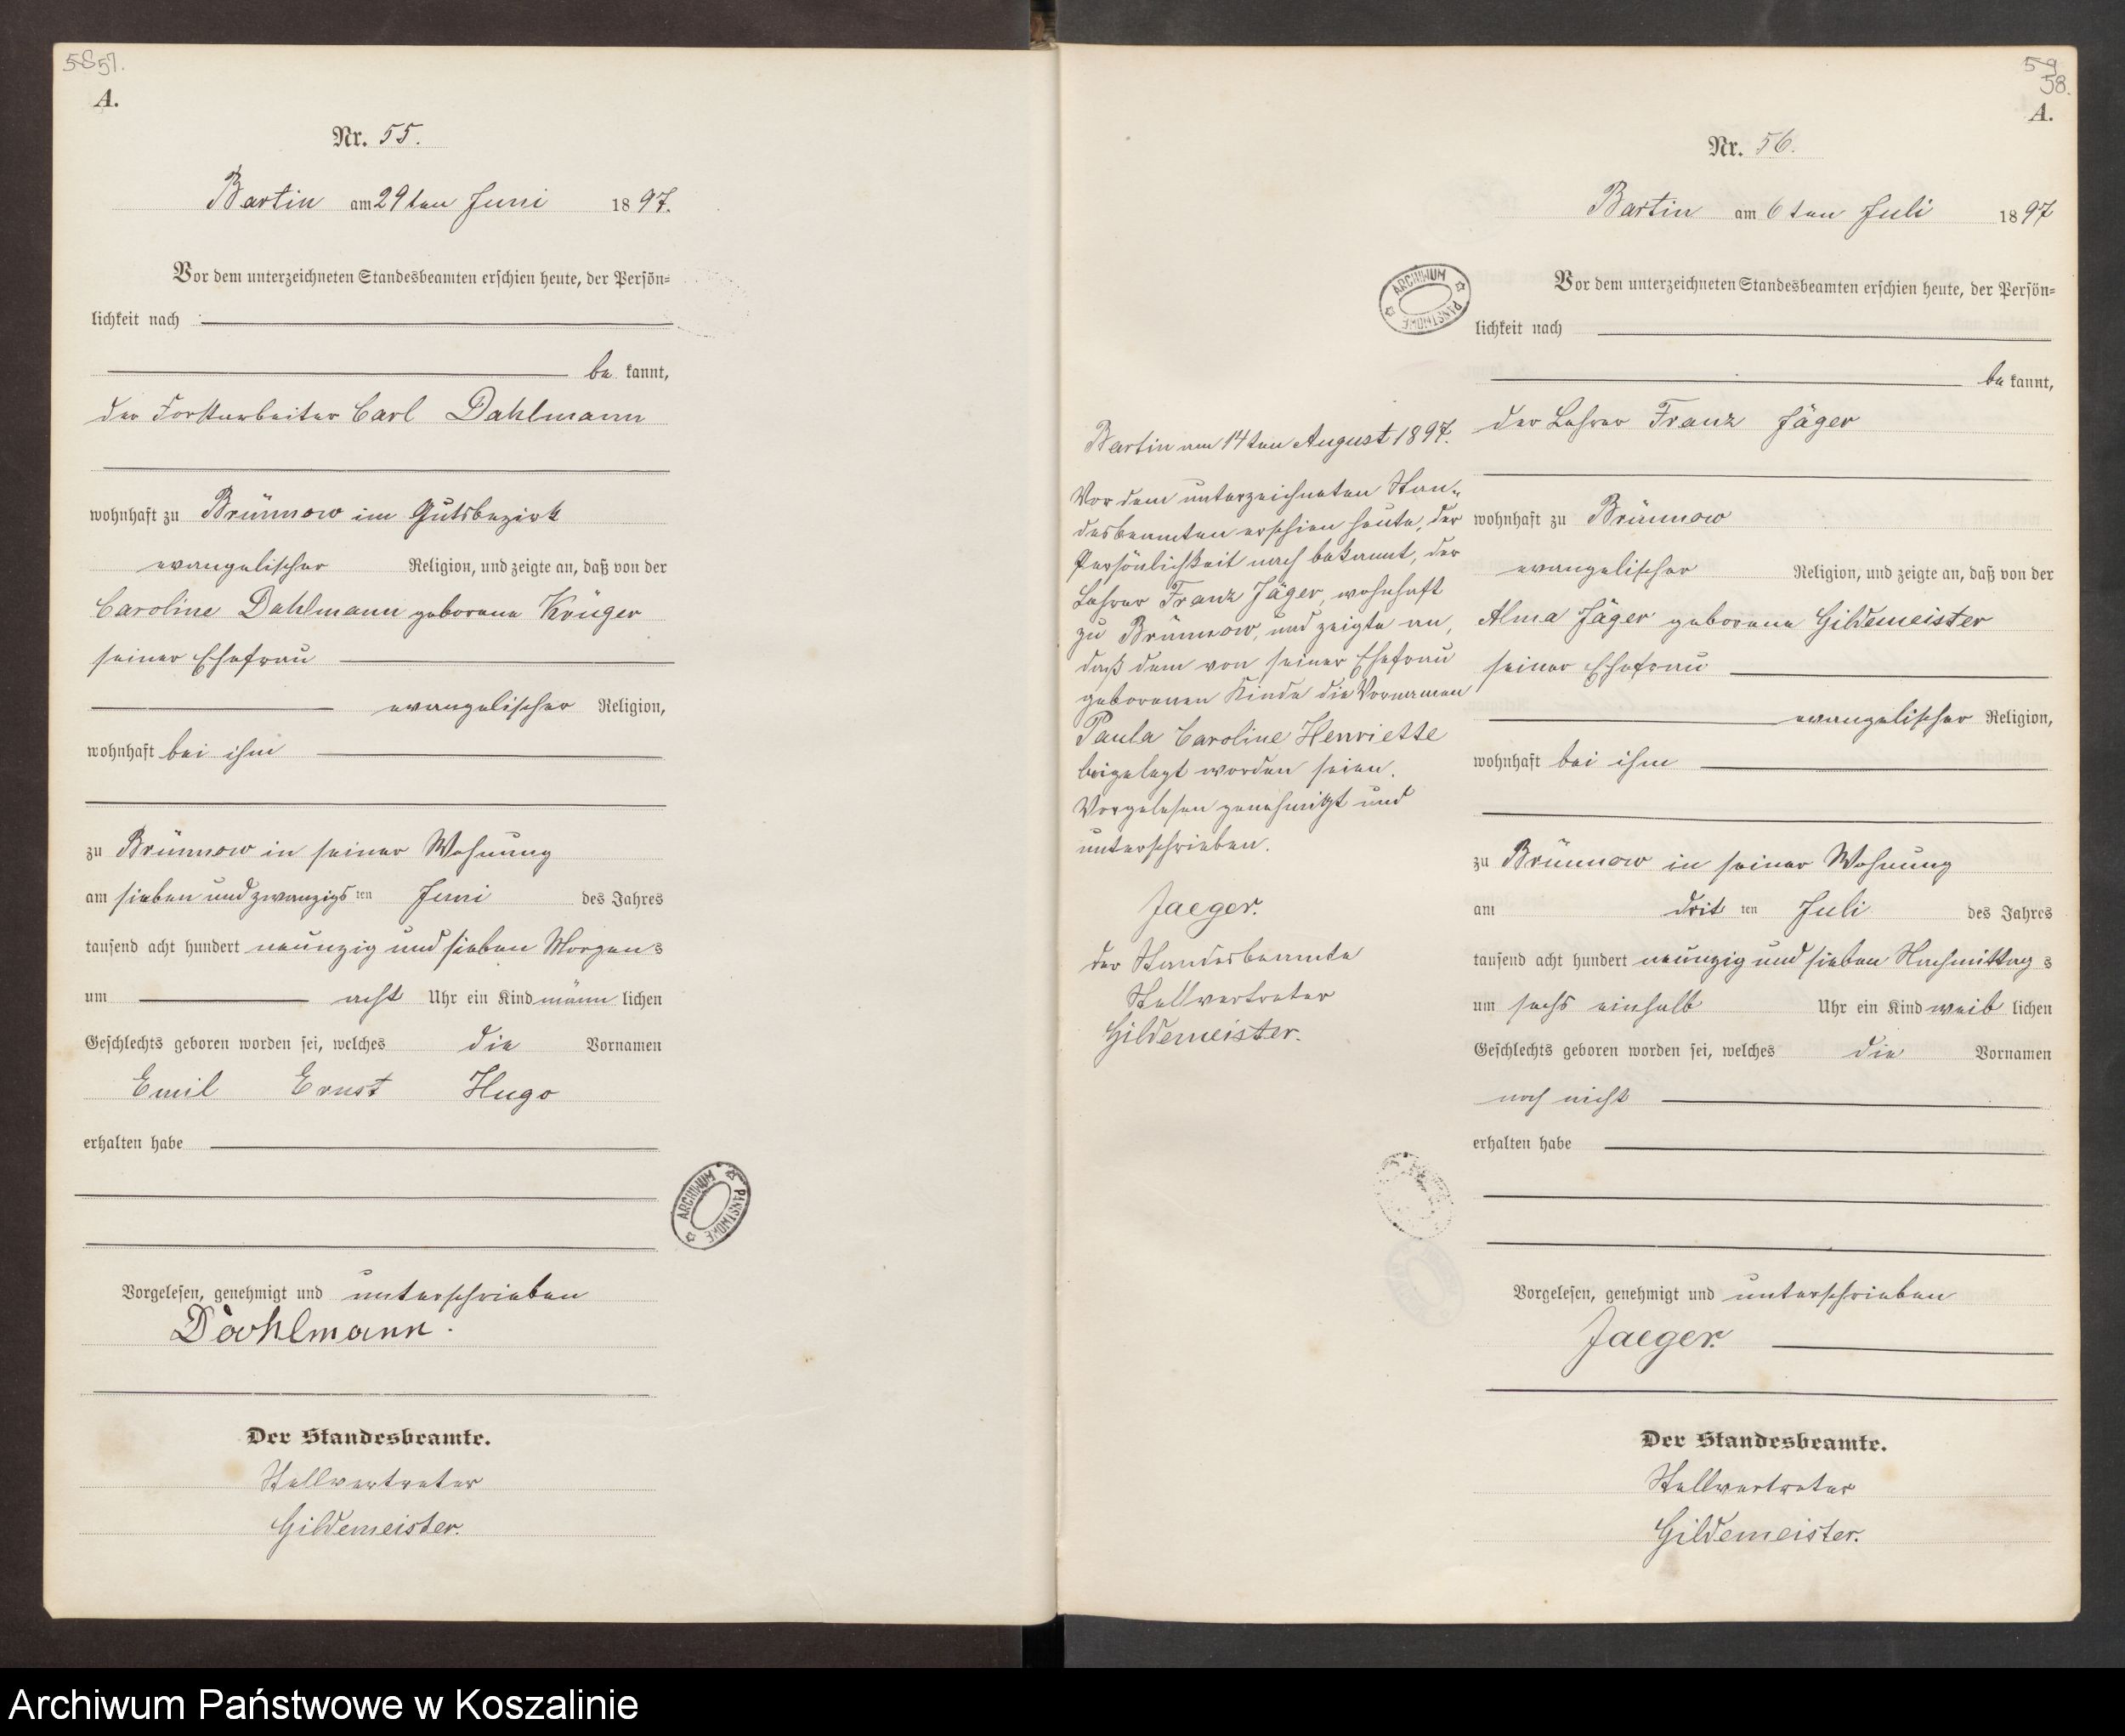 58 57.
A.
Nr. 55.
Bartin am 29ten Juni 1897.
Vor dem unterzeichneten Standesbeamten erschien heute, der Persön=
lichkeit nach
be kannt,
der Forstarbeiter Carl Dahlmann
wohnhaft zu Brünnow im Gutsbezirk
evangelischer Religion, und zeigte an, daß von der
Caroline Dahlmann geborene Krüger
seiner Ehefrau
evangelischer Religion,
wohnhaft bei ihm
zu Brünnow in seiner Wohnung
am sieben und zwanzigs ten Juni des Jahres
tausend acht hundert neunzig und sieben Morgens
um acht Uhr ein Kind männ lichen
Geschlechts geboren worden sei, welches die Vornamen
Emil Ernst Hugo
erhalten habe
Vorgelesen, genehmigt und unterschrieben
Dahlmann.
Der Standesbeamte.
Stellvertreter
Gildemeister.
ARCHIWUM PAŃSTWOWE
59
58.
A.
Nr. 56.
Bartin am 6ten Juli 1897
Vor dem unterzeichneten Standesbeamten erschien heute, der Persön=
lichkeit nach
be kannt,
der Lehrer Franz Jäger
wohnhaft zu Brünnow
evangelischer Religion, und zeigte an, daß von der
Alma Jäger geborene Gildemeister
seiner Ehefrau
evangelischer Religion,
wohnhaft bei ihm
zu Brünnow in seiner Wohnung
am drit ten Juli des Jahres
tausend acht hundert neunzig und sieben Nachmittags
um sechs einhalb Uhr ein Kind weib lichen
Geschlechts geboren worden sei, welches die Vornamen
noch nicht
erhalten habe
Vorgelesen, genehmigt und unterschrieben
Jaeger.
Der Standesbeamte.
Stellvertreter
Gildemeister.
ARCHIWUM PAŃSTWOWE
Bartin am 14ten August 1897.
Vor dem unterzeichneten Stan=
desbeamten erschien heute, der
Persönlichkeit nach bekannt, der
Lehrer Franz Jäger, wohnhaft
zu Brünnow, und zeigte an,
daß dem von seiner Ehefrau
geborenen Kinde die Vornamen
Paula Caroline Henriette
beigelegt worden seien.
Vorgelesen genehmigt und
unterschrieben.
Jaeger.
der Standesbeamte
Stellvertreter
Gildemeister.
Archiwum Państwowe w Koszalinie